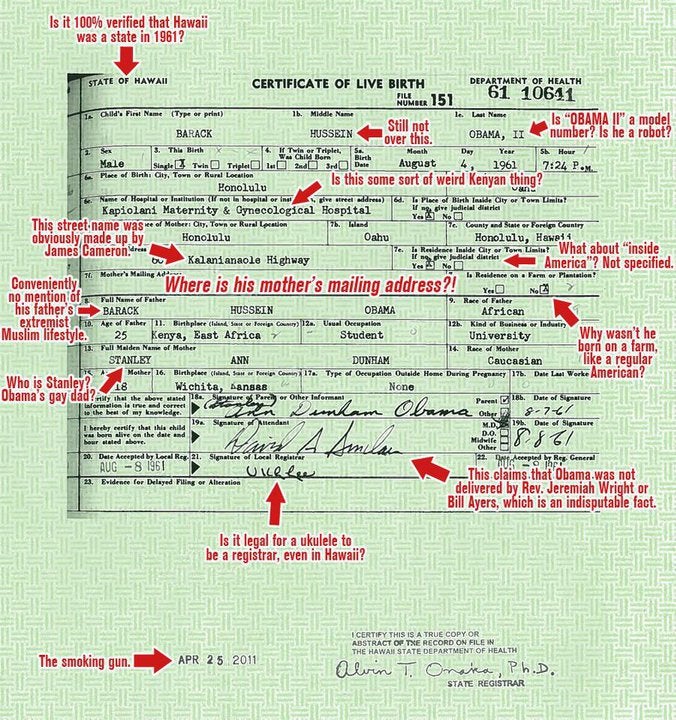 Is it 100% verified that Hawaii
was a state in 1961?
STATE OF HAWAII
CERTIFICATE OF LIVE BIRTH
DEPARTMENT OF HEALTH
FILE
NUMBER 151
61 10641
1a. Child's First Name (Type or print)
1b. Middle Name
1c. Last Name
BARACK
HUSSEIN
OBAMA, II
Still not
over this.
Is “OBAMA II” a model
number? Is he a robot?
2. Sex
3. This Birth
4. If Twin or Triplet,
Was Child Born
5a.
Birth
Date
Month
Day
Year
5b. Hour
Male
Single X Twin Triplet
1st 2nd 3rd
August
4, 1961
7:24 P.M.
6a. Place of Birth: City, Town or Rural Location
Honolulu
Is this some sort of weird Kenyan thing?
6c. Name of Hospital or Institution (If not in hospital or give street address)
6d. Is Place of Birth Inside City or Town Limits?
If no, give judicial district
Kapiolani Maternity & Gynecological Hospital
Yes X No
This street name was
obviously made up by
James Cameron.
of Mother: City, Town or Rural Location
7b. Island
7c. County and State or Foreign Country
Honolulu
Oahu
Honolulu, Hawaii
7e. Is Residence Inside City or Town Limits?
If no, give judicial district
Kalanianaole Highway
Yes X No
What about “inside
America”? Not specified.
7f. Mother's Mailing
Where is his mother's mailing address?!
Is Residence on a Farm or Plantation?
Yes No X
Conveniently
no mention of
his father's
extremist
Muslim lifestyle.
8. Full Name of Father
9. Race of Father
BARACK
HUSSEIN
OBAMA
African
Why wasn't he
born on a farm,
like a regular
American?
10. Age of Father
11. Birthplace (Island, State or Foreign Country)
12a. Usual Occupation
12b. Kind of Business or Industry
25
Kenya, East Africa
Student
University
13. Full Maiden Name of Mother
14. Race of Mother
STANLEY
ANN
DUNHAM
Caucasian
Who is Stanley?
Obama's gay dad?
Mother
16. Birthplace (Island, State or Foreign Country)
17a. Type of Occupation Outside Home During Pregnancy
17b. Date Last Worked
18
Wichita, Kansas
None
certify that the above stated
information is true and correct
to the best of my knowledge.
18a. Signature of Parent or Other Informant
Parent
Other
18b. Date of Signature
(Stanley) Ann Dunham Obama
8-7-61
I hereby certify that this child
was born alive on the date and
hour stated above.
19a. Signature of Attendant
M.D.
D.O.
Midwife
Other
19b. Date of Signature
David A Sinclair
8-8-61
20. Date Accepted by Local Reg.
21. Signature of Local Registrar
22. Date Accepted by Reg. General
AUG -8 1961
UKLee
23. Evidence for Delayed Filing or Alteration
This claims that Obama was not
delivered by Rev. Jeremiah Wright or
Bill Ayers, which is an indisputable fact.
Is it legal for a ukulele to
be a registrar, even in Hawaii?
The smoking gun.
APR 25 2011
I CERTIFY THIS IS A TRUE COPY OR
ABSTRACT OF THE RECORD ON FILE IN
THE HAWAII STATE DEPARTMENT OF HEALTH
Alvin T. Onaka, Ph.D.
STATE REGISTRAR